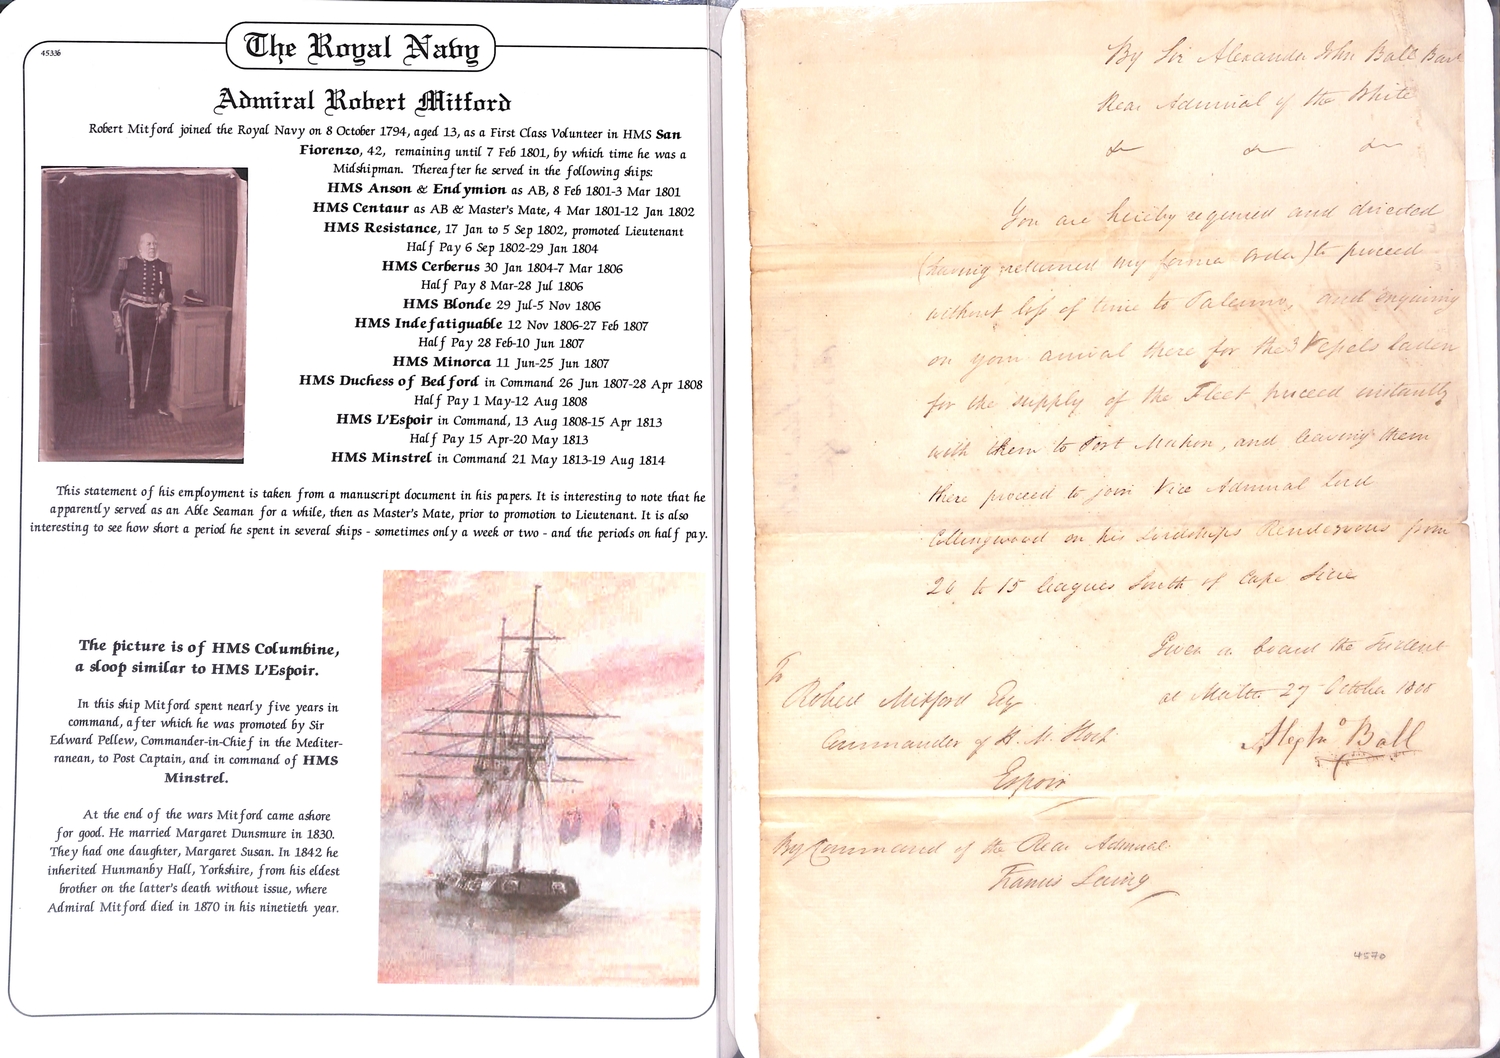 45336
The Royal Navy
Admiral Robert Mitford
Robert Mitford joined the Royal Navy on 8 October 1794, aged 13, as a First Class Volunteer in HMS San
Fiorenzo, 42, remaining until 7 Feb 1801, by which time he was a
Midshipman. Thereafter he served in the following ships:
HMS Anson & Endymion as AB, 8 Feb 1801-3 Mar 1801
HMS Centaur as AB & Master's Mate, 4 Mar 1801-12 Jan 1802
HMS Resistance, 17 Jan to 5 Sep 1802, promoted Lieutenant
Half Pay 6 Sep 1802-29 Jan 1804
HMS Cerberus 30 Jan 1804-7 Mar 1806
Half Pay 8 Mar-28 Jul 1806
HMS Blonde 29 Jul-5 Nov 1806
HMS Indefatiguable 12 Nov 1806-27 Feb 1807
Half Pay 28 Feb-10 Jun 1807
HMS Minorca 11 Jun-25 Jun 1807
HMS Duchess of Bedford in Command 26 Jun 1807-28 Apr 1808
Half Pay 1 May-12 Aug 1808
HMS L'Espoir in Command, 13 Aug 1808-15 Apr 1813
Half Pay 15 Apr-20 May 1813
HMS Minstrel in Command 21 May 1813-19 Aug 1814
This statement of his employment is taken from a manuscript document in his papers. It is interesting to note that he
apparently served as an Able Seaman for a while, then as Master's Mate, prior to promotion to Lieutenant. It is also
interesting to see how short a period he spent in several ships - sometimes only a week or two - and the periods on half pay.
The picture is of HMS Columbine,
a sloop similar to HMS L'Espoir.
In this ship Mitford spent nearly five years in
command, after which he was promoted by Sir
Edward Pellew, Commander-in-Chief in the Mediter-
ranean, to Post Captain, and in command of HMS
Minstrel.
At the end of the wars Mitford came ashore
for good. He married Margaret Dunsmure in 1830.
They had one daughter, Margaret Susan. In 1842 he
inherited Hunmanby Hall, Yorkshire, from his eldest
brother on the latter's death without issue, where
Admiral Mitford died in 1870 in his ninetieth year.
By Sir Alexander John Ball Bart
Rear Admiral of the White
&c &c &c
You are hereby required and directed
(having returned my former Order) to proceed
without loss of time to Palermo, and enquiring
on your arrival there for the 3 Vessels laden
for the supply of the Fleet proceed instantly
with them to Port Mahon, and leaving them
there proceed to join Vice Admiral Lord
Collingwood on his Lordships Rendezvous from
20 to 15 leagues South of Cape Sicie
Given on board the Trident
at Malta 27 October 1808
Alexr Ball
To
Robert Mitford Esq
Commander of H. M. Sloop
Espoir
By Command of the Rear Admiral
Francis Laing
4570